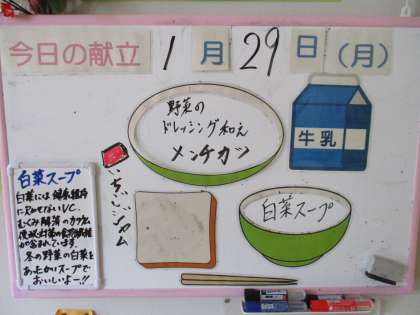 今日の献立 1月29日(月)
野菜の
ドレッシング和え
メンチカツ
牛乳
いちごジャム
白菜スープ
白菜スープ
白菜には健康維持
に欠かせないV.C.
むくみ解消のカリウム
便秘対策の食物繊維
が含まれています。
冬の野菜の白菜を
あったかいスープで
おいしいよー!!